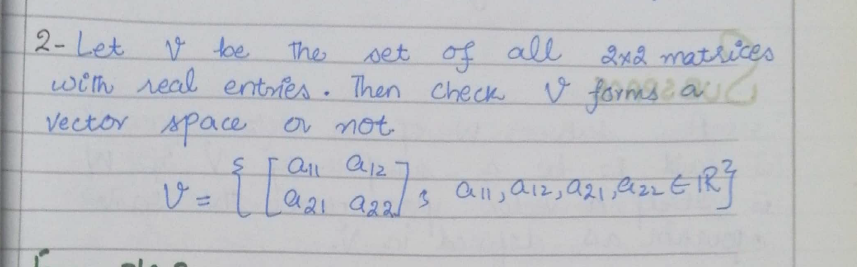 2- Let V be the set of all 2x2 matrices
with real entries. Then check V forms a
vector space or not
V = { [ a11 a12
a21 a22 ] ; a11, a12, a21, a22 ∈ R }